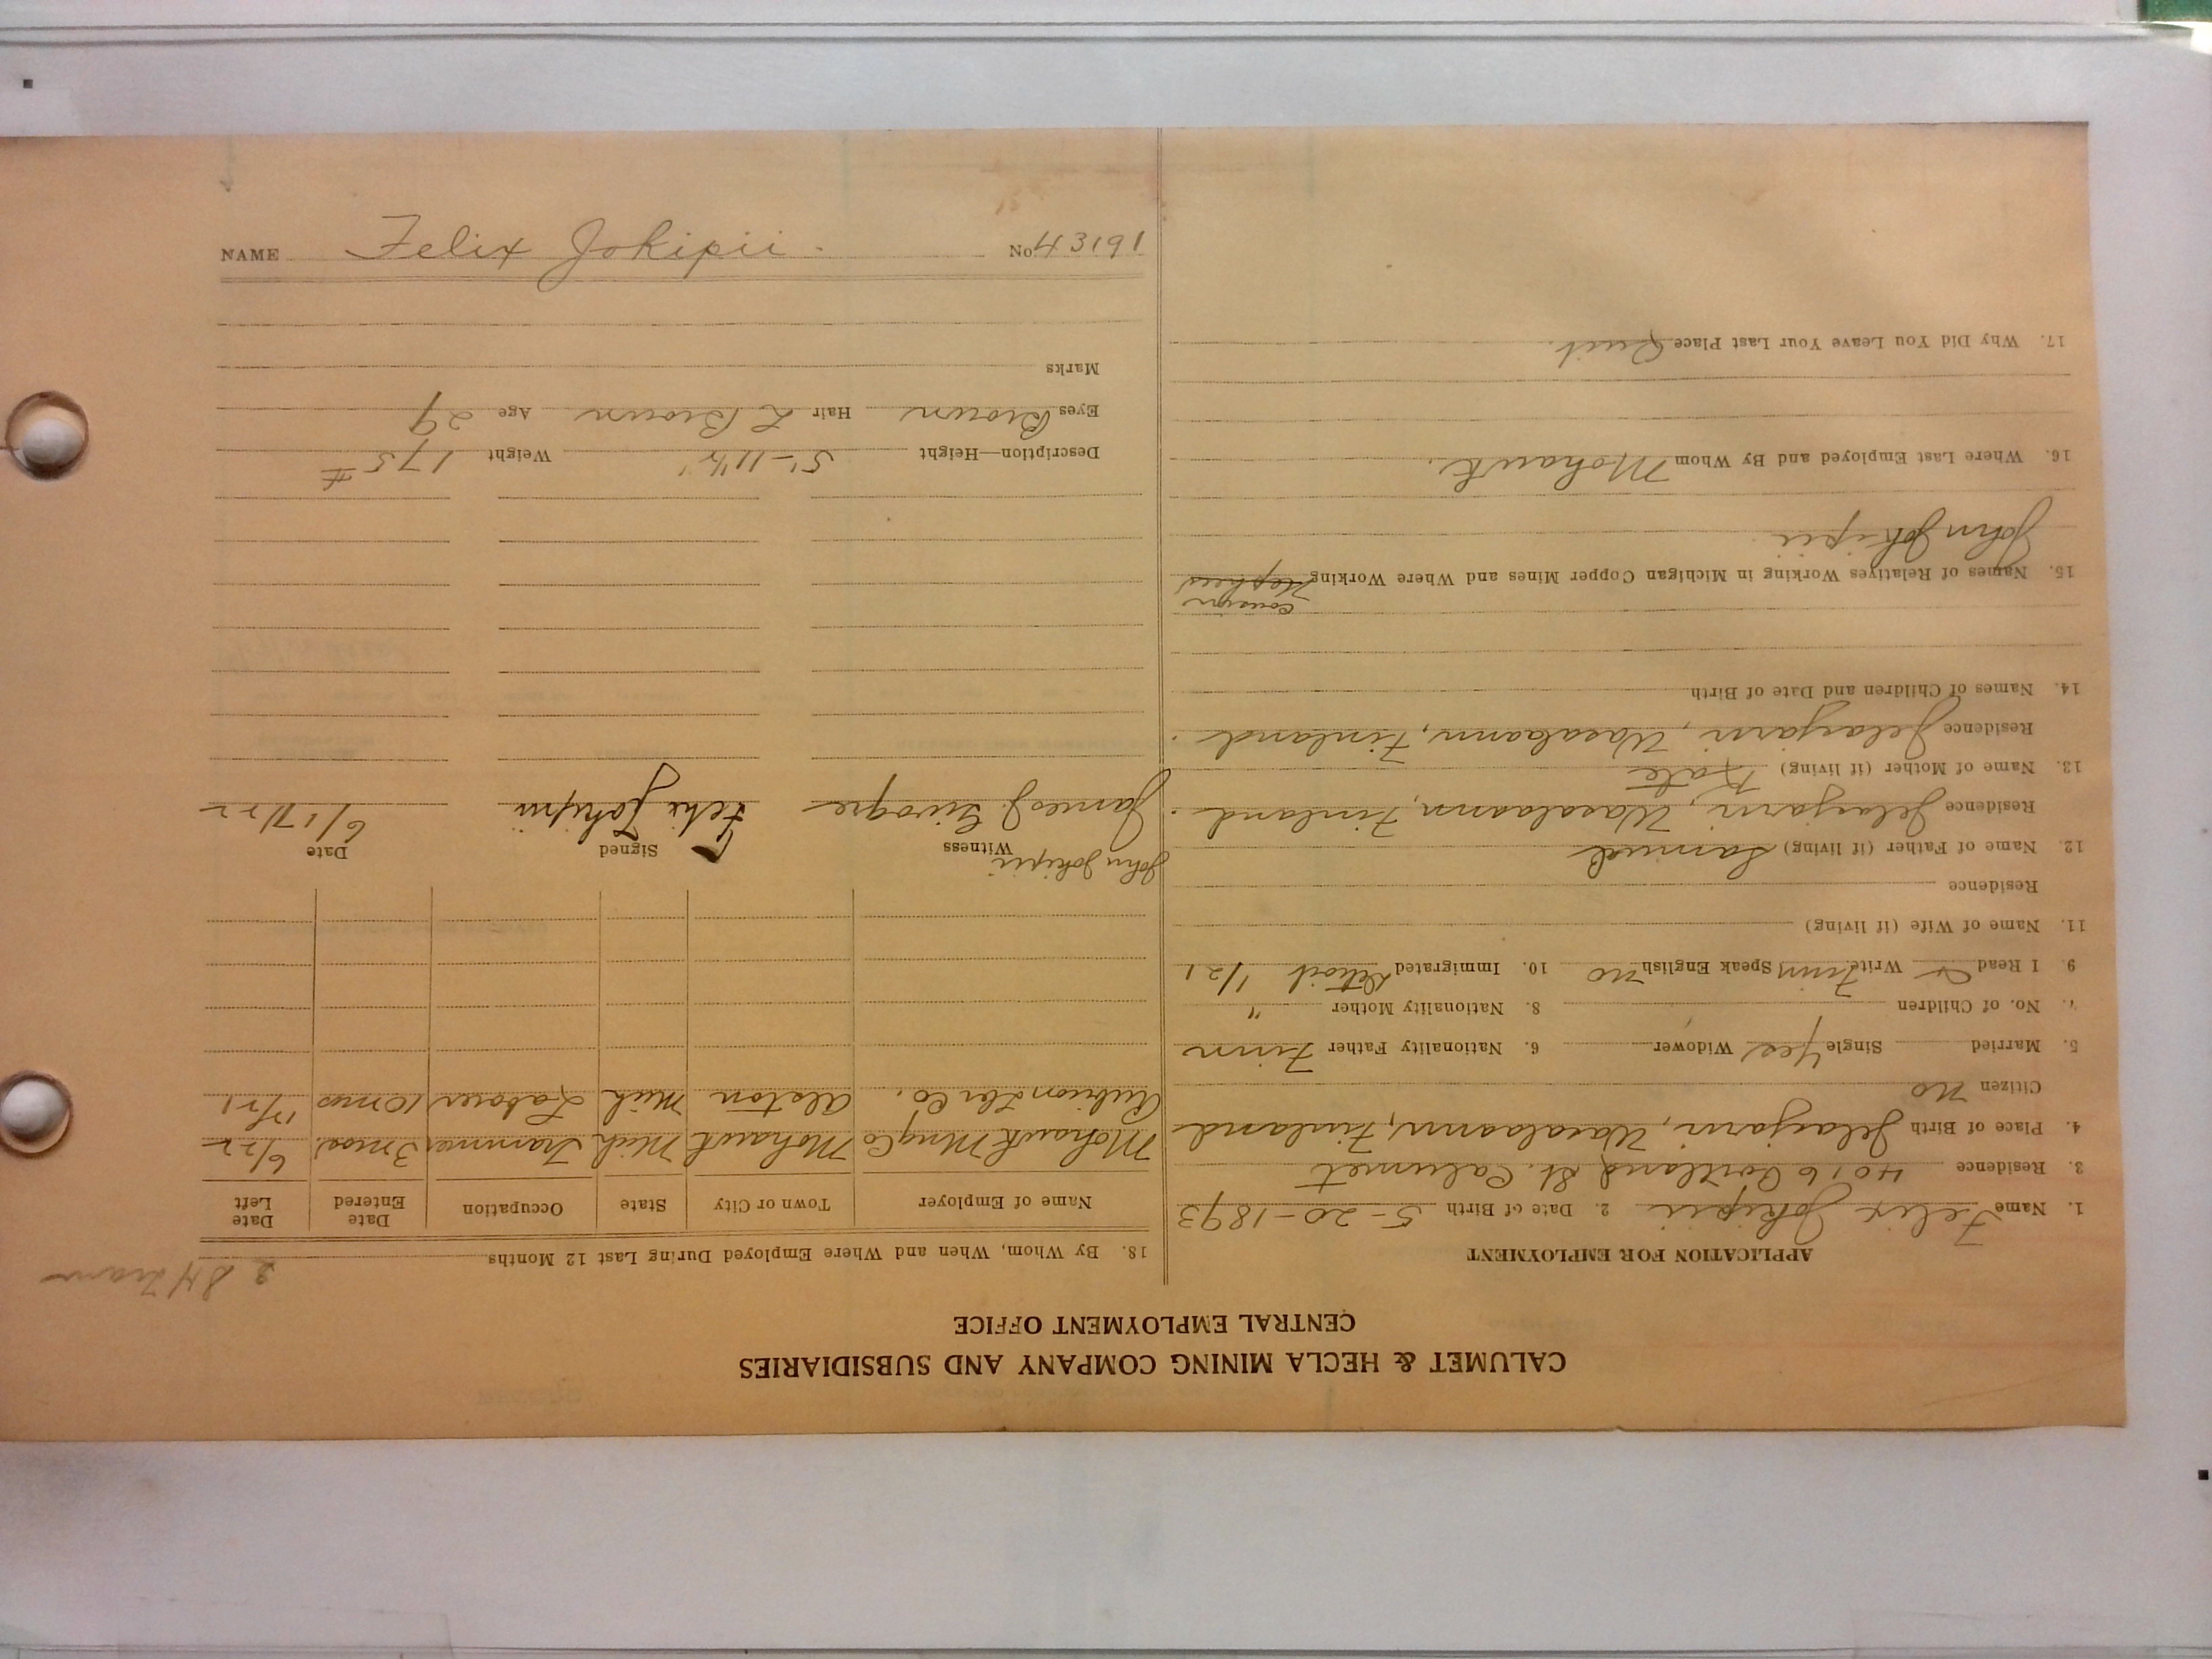 CALUMET & HECLA MINING COMPANY AND SUBSIDIARIES
CENTRAL EMPLOYMENT OFFICE
APPLICATION FOR EMPLOYMENT
1. Name Felix Jokipii 2. Date of Birth 5-20-1893
3. Residence 4016 Portland St. Calumet
4. Place of Birth Jelasjarvi, Waasalaann, Finland
Citizen no
5. Married Single Yes Widower 6. Nationality Father Finn
7. No. of Children 8. Nationality Mother "
9. I Read & Write Finn Speak English no 10. Immigrated Detroit 1/21
11. Name of Wife (if living)
Residence
12. Name of Father (if living) Samuel
Residence Jelasjarvi, Waasalaann, Finland.
13. Name of Mother (if living) Kate
Residence Jelasjarvi, Waasalaann, Finland.
14. Names of Children and Date of Birth
cousin
15. Names of Relatives Working in Michigan Copper Mines and Where Working Nephew
John Jokipii
16. Where Last Employed and By Whom Mohawk.
17. Why Did You Leave Your Last Place Quit.
2 SH Tram
18. By Whom, When and Where Employed During Last 12 Months
Name of Employer Town or City State Occupation Date Entered Date Left
Mohawk Mng Co Mohawk Mich Trammer 3 mos. 6/22
Lbr Co. Alston Mich Laborer 10 mos
John Jokipii
Witness Signed Date
James J. Felix Jokipii 6/17/22
Description—Height 5'-11½" Weight 175#
Eyes Brown Hair L Brown Age 29
Marks
NAME Felix Jokipii. No. 43191